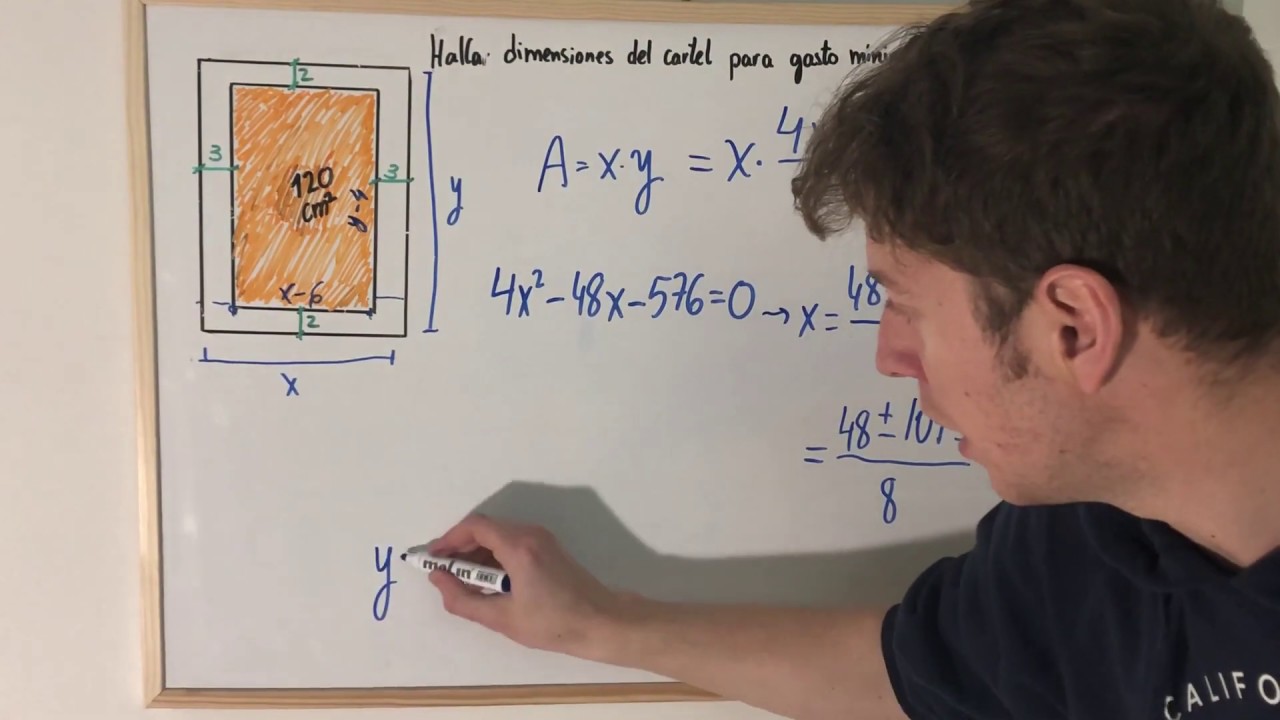 Halla: dimensiones del cartel para gasto
2
3
3
120
cm²
y-4
y
x-6
2
x
A = x·y = x·
4x²-48x-576=0 → x=
48
48 ±
=
8
y
CALIFO